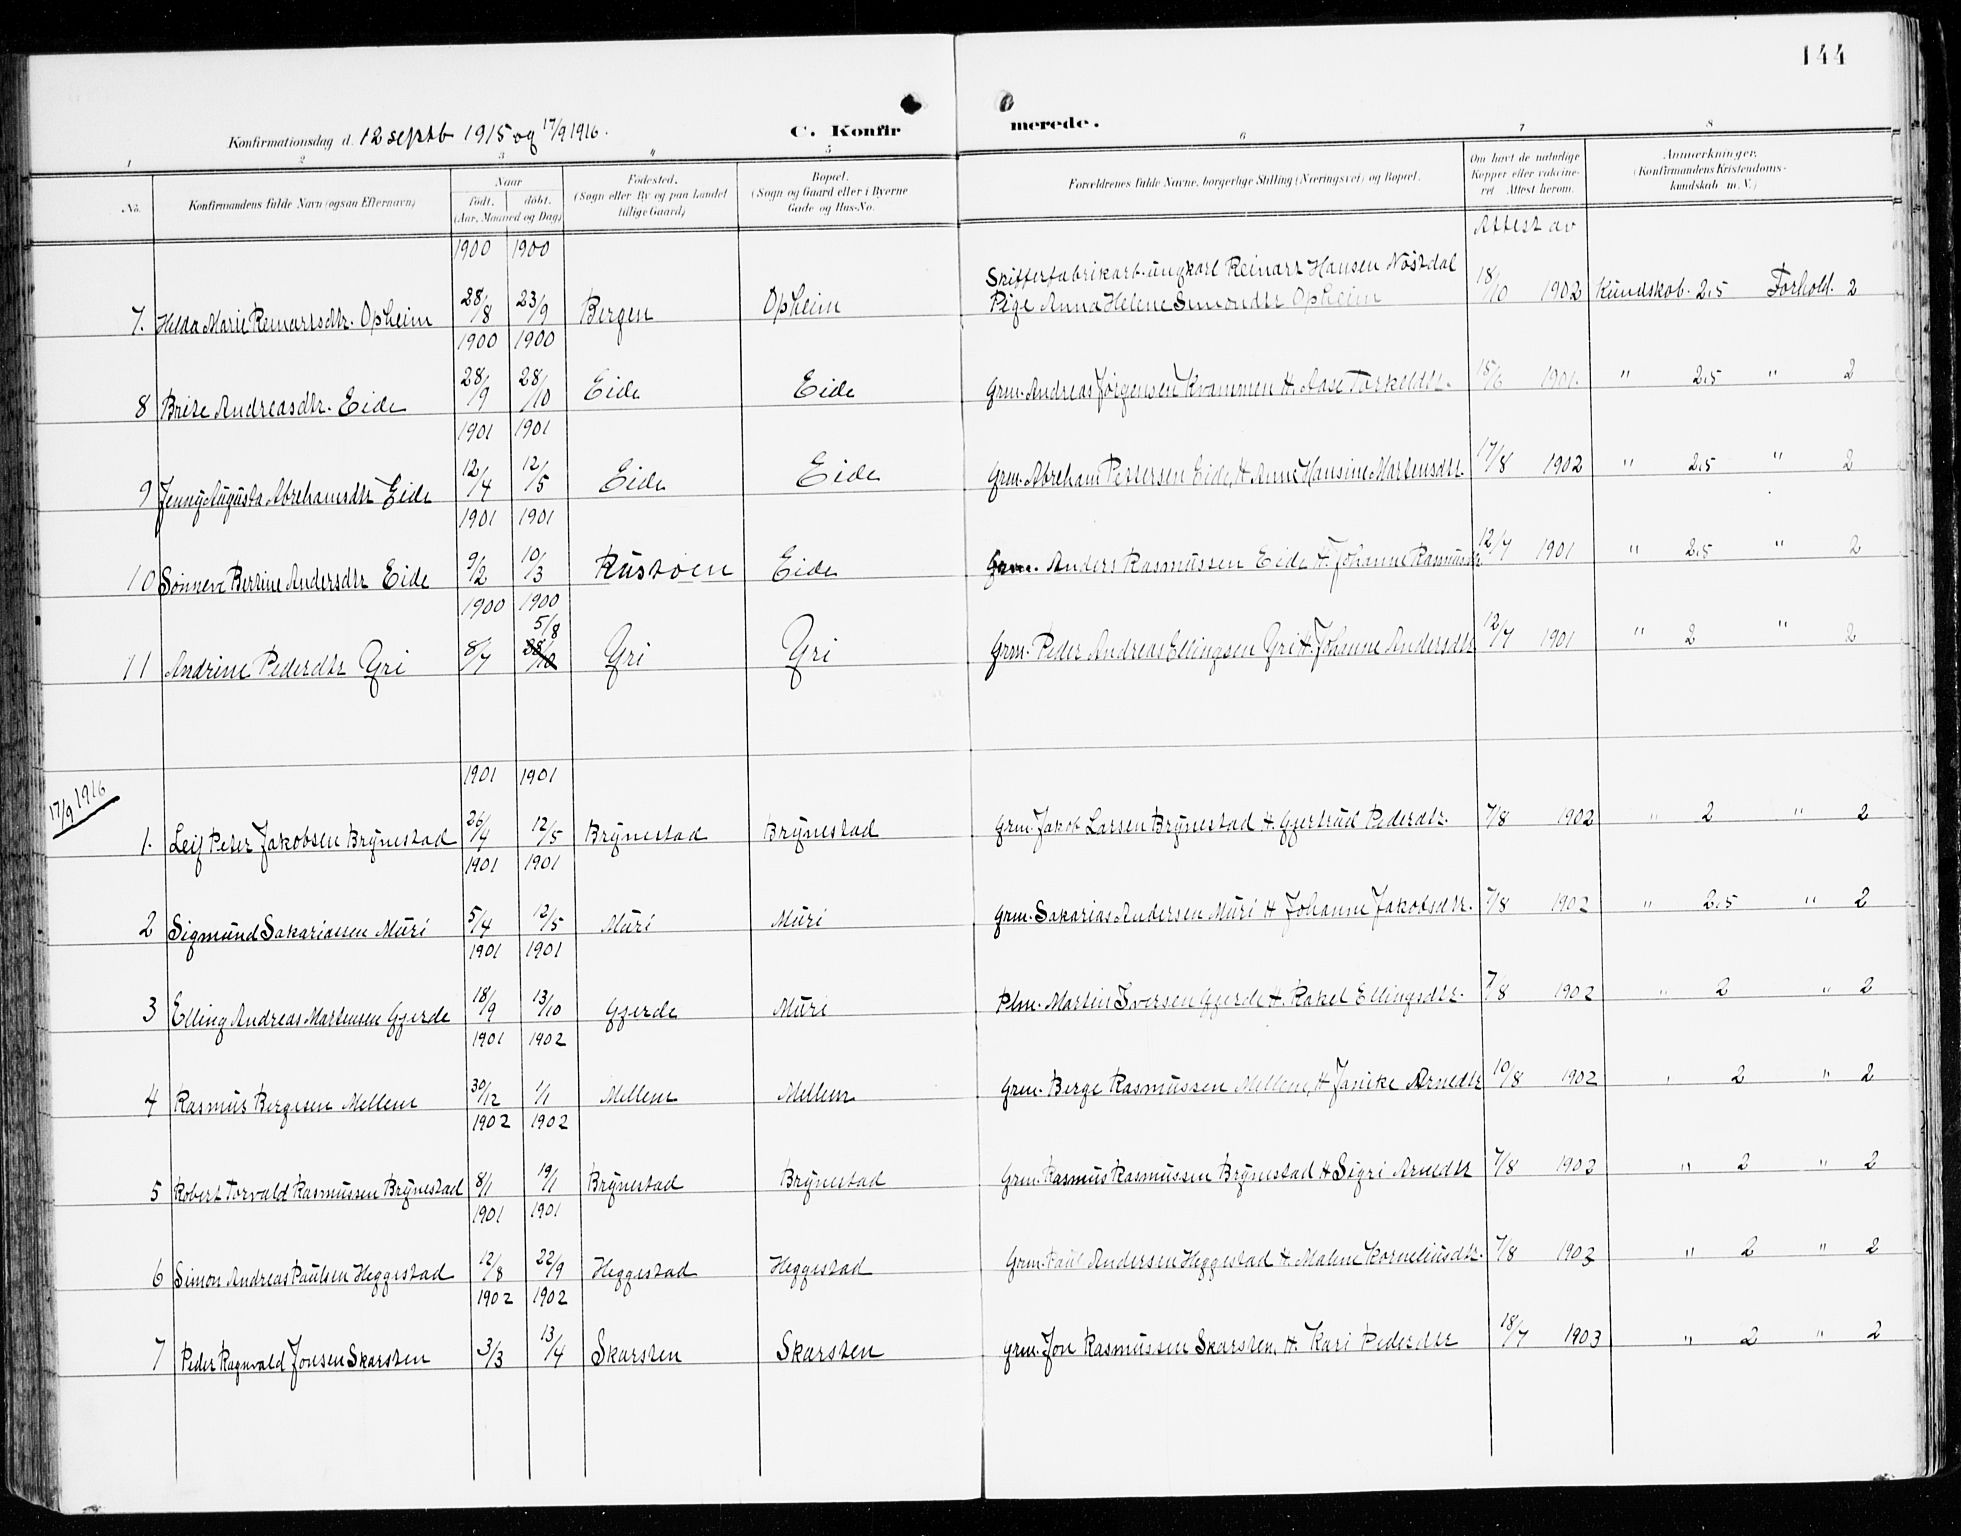 144
Konfirmationsdag d. 12 septb 1915 og 17/9 1916. C. Konfirmerede.
1 2 3 4 5 6 7 8
No. Konfirmandens fulde Navn (ogsaa Efternavn) Naar født. døbt. (Aar, Maaned og Dag) Fødested. (Sogn eller By og paa Landet tillige Gaard) Bopæl. (Sogn og Gaard eller i Byerne Gade og Hus-No. Forældrenes fulde Navne, borgerlige Stilling (Næringsvei) og Bopæl. Om havt de naturlige Kopper eller vaccineret. Attest herom. Anmærkninger. (Konfirmandens Kristendomskundskab m. V.)
Attest av
1900 1900
Skifferfabrikarb. ungkarl Reinart Hansen Nöstdal
7. Hilda Marie Reinartsdtr. Opheim 28/8 23/9 Bergen Opheim Pige Anna Helene Simondtr Opheim 18/10 1902 Kundskab. 2.5 Forhold. 2
1900 1900
8 Brite Andreasdtr. Eide 28/9 28/10 Eide Eide Grm. Andreas Jörgensen Kvammen H. Aase Torkeldtr. 15/6 1901. " 2.5 " 2
1901 1901
9 Jenny Augusta Abrehamsdtr Eide 12/4 12/5 Eide Eide Grm. Abreham Pettersen Eide, H Anne Hansine Martensdtr 17/8 1902 " 2.5 " 2
1901 1901
10 Sönneve Bertine Andersdtr Eide 9/2 10/3 Rustöen Eide Grm. Anders Rasmussen Eide H. Johanne Rasmusdtr. 12/7 1901 " 2.5 " 2
1900 1900
5/8
11 Andrine Pederdtr Yri 8/7 28/10 Yri Yri Grm. Peder Andreas Ellingsen Yri H. Johanne Andersdtr 12/7 1901 " 2 " 2
17/9 1916
1901 1901
1. Leif Peter Jakobsen Brynestad 26/4 12/5 Brynestad Brynestad Grm. Jakob Larsen Brynestad H. Gjertrud Pederdtr. 7/8 1902 " 2 " 2
1901 1901
2 Sigmund Sakariassen Muri 5/4 12/5 Muri Muri Grm. Sakarias Andersen Muri H Johanne Jakobsdtr. 7/8 1902 " 2.5 " 2
1901 1901
3 Elling Andreas Martensen Gjerde 18/9 13/10 Gjerde Muri Plm. Martin Iversen Gjerde H. Rakel Ellingsdtr. 7/8 1902 " 2 " 2
1901 1902
4 Rasmus Bergesen Mellem 30/12 1/1 Mellem Mellem Grm. Berge Rasmussen Mellem, H Janike Arnedtr 10/8 1902 " 2 " 2
1902 1902
5 Robert Torvald Rasmussen Brynestad 8/1 19/1 Brynestad Brynestad Grm. Rasmus Rasmussen Brynestad H Sigri Arnedtr 7/8 1902 " 2 " 2
1901 1901
6 Simon Andreas Paulsen Heggestad 12/8 22/9 Heggestad Heggestad Grm. Paul Andersen Heggestad H. Malene Korneliusdtr. 7/8 1902 " 2 " 2
1902 1902
7 Peder Ragnvald Jonsen Skarsten 3/3 13/4 Skarsten Skarsten Grm. Jon Rasmussen Skarsten, H. Kari Pederdtr 18/7 1903 " 2 " 2